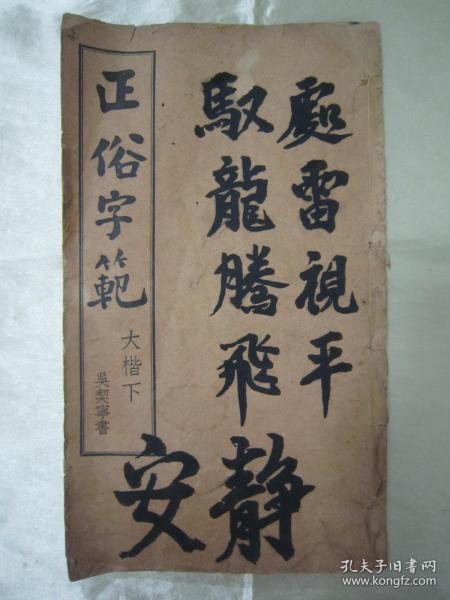 處雷視平
馭龍騰飛
静安
正俗字範
大楷下
吳契寧書
孔夫子旧书网
www.kongfz.com